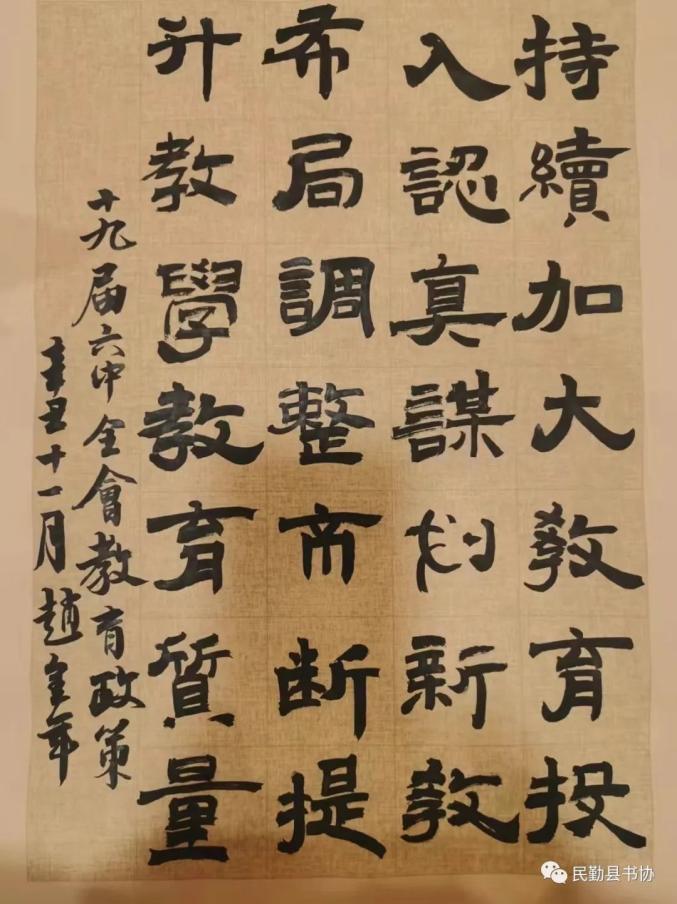 持續加大教育投
入認真謀划新教
布局調整不断提
升教學教育質量
十九届六中全會教育政策
辛丑十一月趙金年
民勤县书协